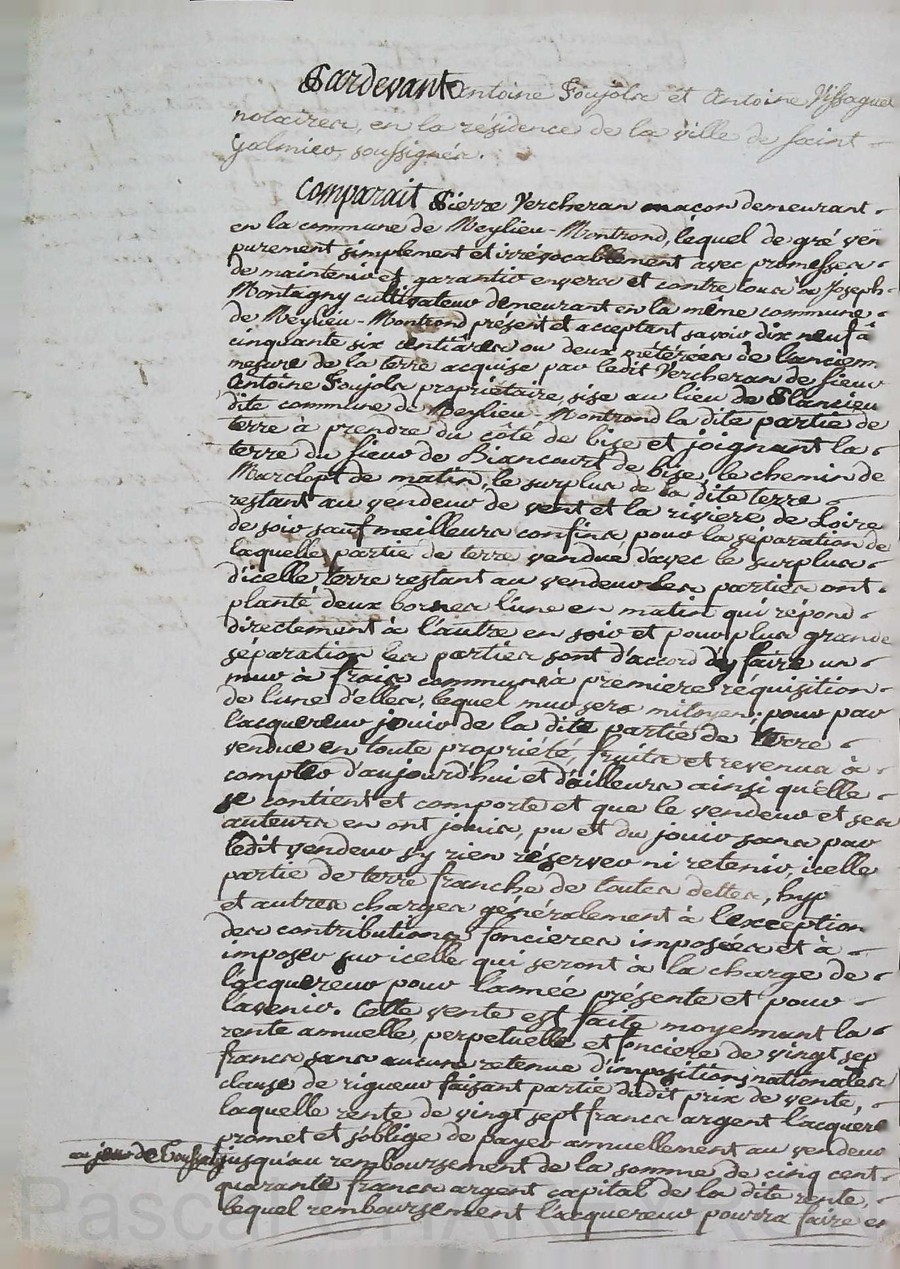 Pardevant Antoine Soujola et Antoine Vissaguet
notaires, en la résidence de la ville de saint
Galmier, soussignés.
Comparait Pierre Vercheran maçon demeurant
en la commune de Meylieu-Montrond, lequel de gré ven
purement simplement et irrévocablement avec promesses
de maintenir et garantir envers et contre tous à Joseph
Montagny cultivateur demeurant en la même commune
de Meylieu-Montrond présent et acceptant savoir dix neuf à
cinquante six centiares ou deux métérées de l'ancienn
mesure de la terre acquise par ledit Vercheran de sieur
Antoine Soujola propriétaire, sise au lieu de Plancieu
dite commune de Meylieu Montrond la dite partie de
terre à prendre du côté de bise et joignant la
terre du sieur de Liancourt de bise, le chemin de
Marclopt de matin, le surplus de la dite terre
restant au vendeur de vent et la riviere de Loire
de soir sauf meilleurs confins pour la séparation de
laquelle partie de terre vendue d'avec le surplus
d'icelle terre restant au vendeur les parties ont
planté deux bornes l'une en matin qui répond
directement à l'autre en soir et pour plus grande
séparation les parties sont d'accord d'y faire un
mur à frais communs à premiere réquisition
de l'une d'elles, lequel mur sera mitoyen; pour par
l'acquereur jouir de la dite partie de terre
vendue en toute propriété, fruits et revenus à
compter d'aujourd'hui et d'ailleurs ainsi qu'elle
se contient et comporte et que le vendeur et ses
auteurs en ont jouis, pu et du jouir sans par
ledit vendeur s'y rien réserver ni retenir, icelle
partie de terre franche de toutes dettes, hyp
et autres charges généralement à l'exception
des contributions foncieres imposées et à
imposer sur icelle qui seront à la charge de
l'acquereur pour l'année présente et pour
l'avenir. Cette vente est faite moyennant la
rente annuelle, perpetuelle et fonciere de vingt sep
francs sans aucune retenue d'impositions nationales
clause de rigueur faisant partie dudit prix de vente,
laquelle rente de vingt sept francs argent l'acquere
promet et s'oblige de payer annuellement au vendeur
au jour de Toussaint jusqu'au remboursement de la somme de cinq cent
quarante francs argent capital de la dite rente,
lequel remboursement l'acquereur pourra faire en
Pascal